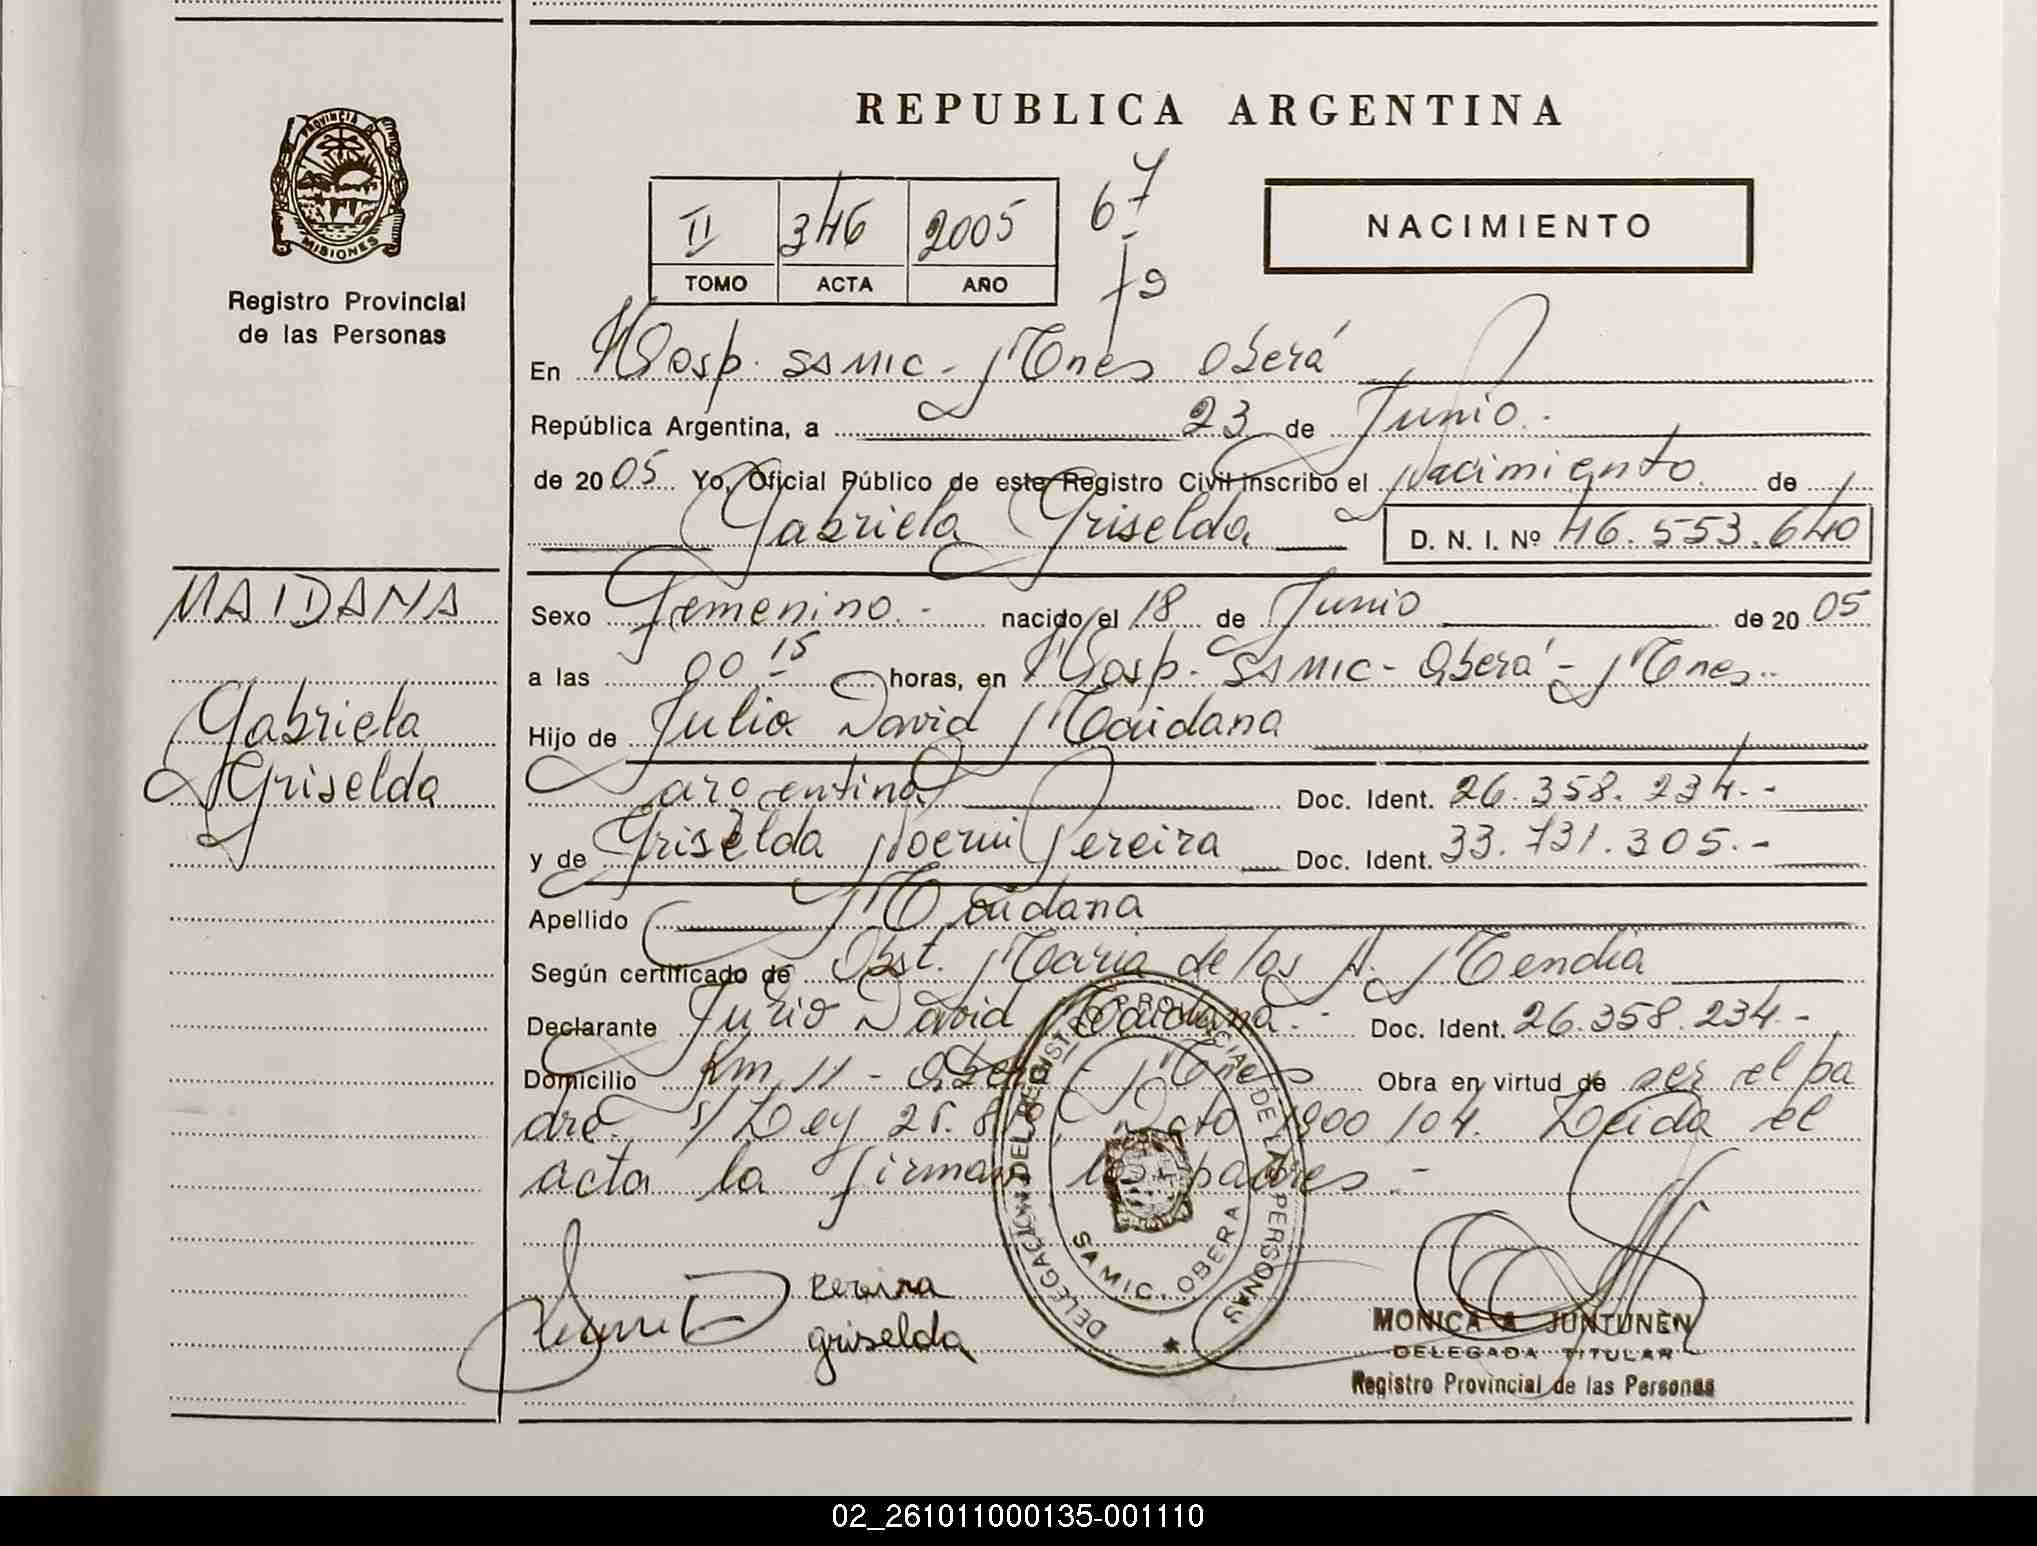 REPUBLICA ARGENTINA
PROVINCIA D
MISIONES
Registro Provincial
de las Personas
II 346 2005
TOMO ACTA AÑO
67
NACIMIENTO
En Hosp. SAMIC - Mnes Oberá
República Argentina, a 23 de Junio.-
de 2005 Yo, Oficial Público de este Registro Civil inscribo el Nacimiento de
Gabriela Griselda D. N. I. Nº 46.553.640
MAIDANA
Gabriela
Griselda
Sexo Femenino.- nacido el 18 de Junio de 2005
a las 00 15 horas, en Hosp. SAMIC - Oberá - Mnes.-
Hijo de Julio David Maidana
argentino Doc. Ident. 26.358.234.-
y de Griselda Noemi Pereira Doc. Ident. 33.731.305.-
Apellido Maidana
Según certificado de Obst. Maria de los A. Mendia
Declarante Julio David Maidana.- Doc. Ident. 26.358.234.-
Domicilio Km 11 - Oberá - Mnes Obra en virtud de ser el pa
dre. s/ Ley Dcto 1900/04. Leida el
acta la firman los padres.-
DELEGACION DEL REGISTRO PROVINCIAL DE LAS PERSONAS
SAMIC. OBERA
Pereira
griselda
MONICA A JUNTUNEN
DELEGADA TITULAR
Registro Provincial de las Personas
02_261011000135-001110